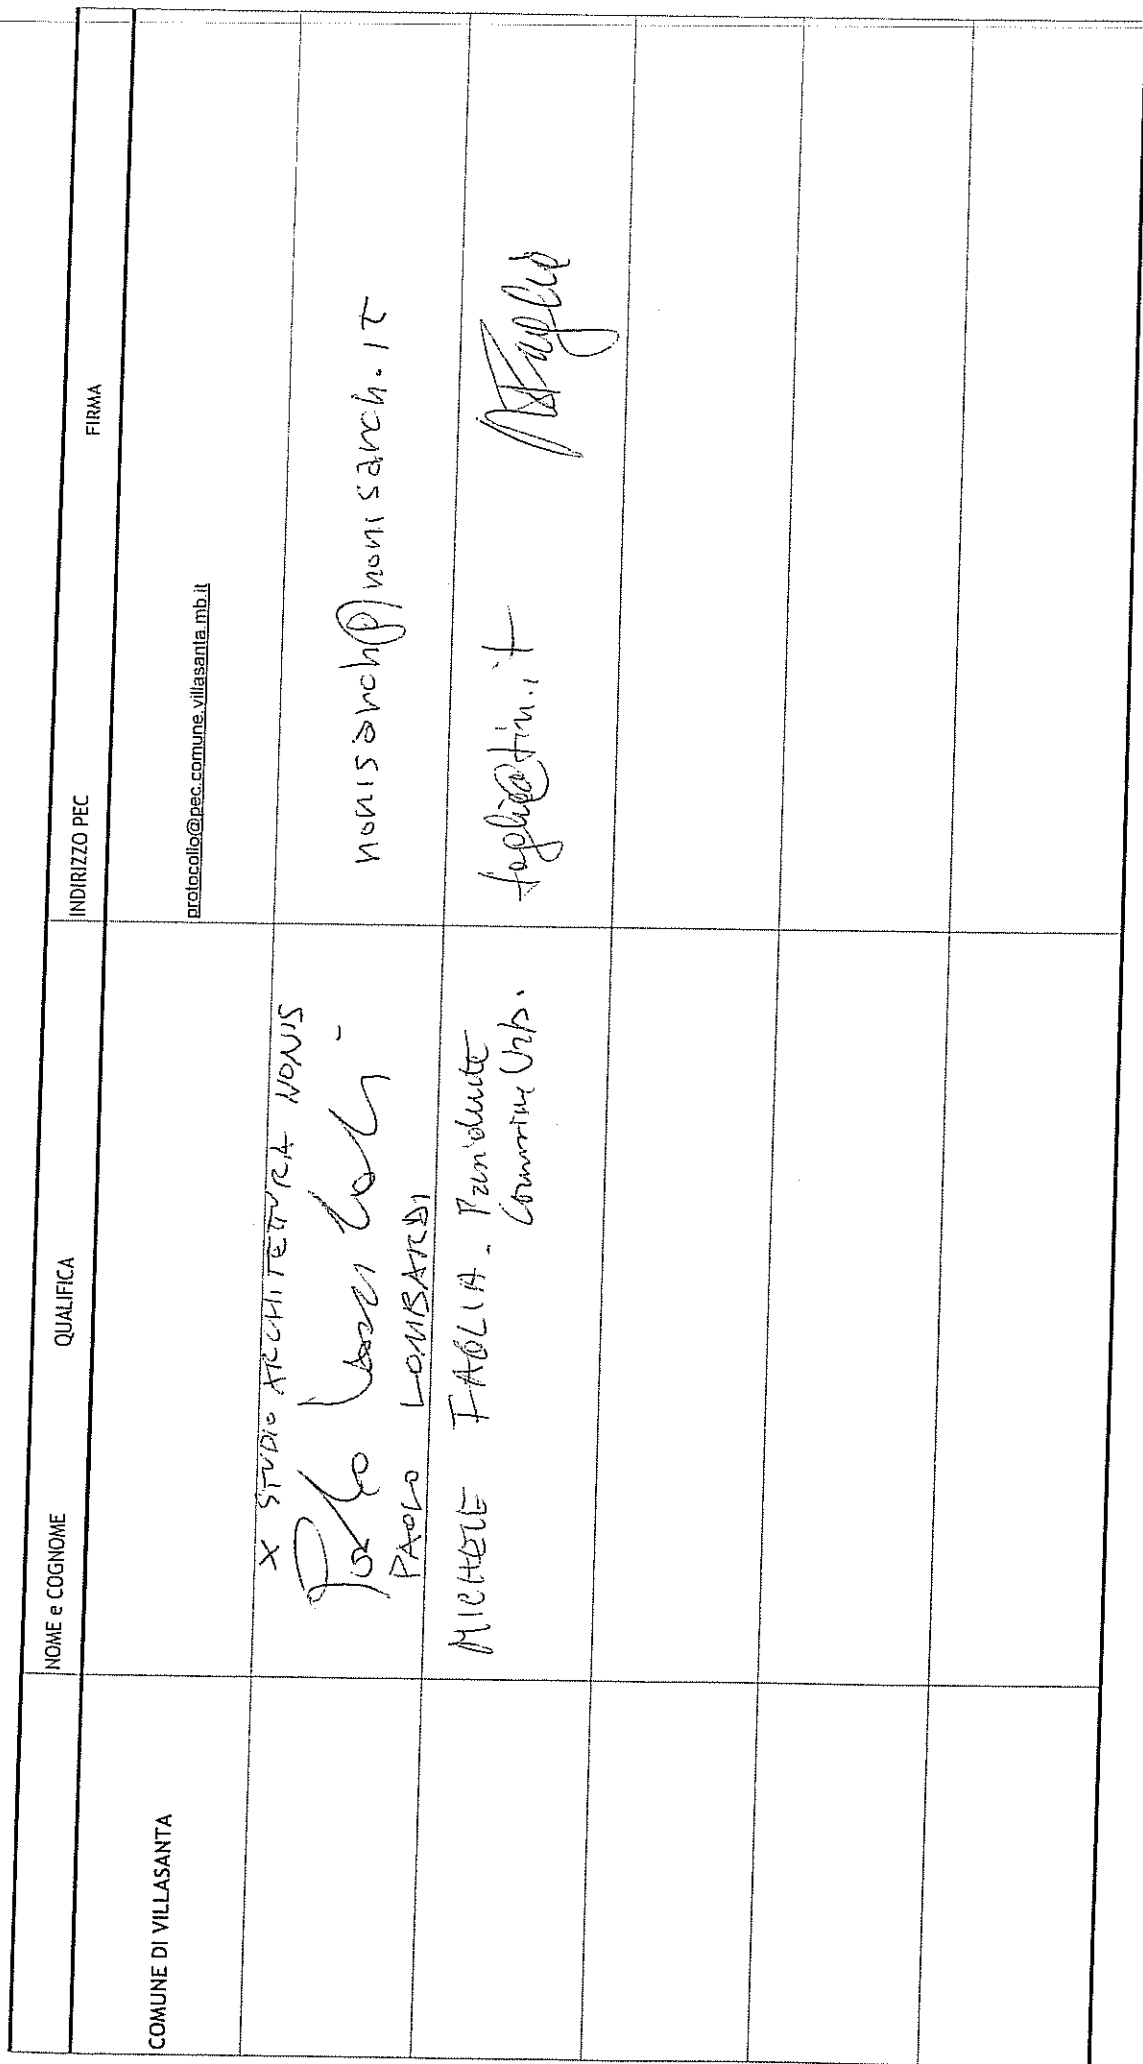 NOME e COGNOME QUALIFICA INDIRIZZO PEC FIRMA
COMUNE DI VILLASANTA protocollo@pec.comune.villasanta.mb.it
X STUDIO ARCHITETTURA NONIS
Paolo Lombardi
PAOLO LOMBARDI
nonisarch@nonisarch.it
MICHELE FAGLIA - Presidente
Commissione Urb.
faglia@tim.it
MFaglia